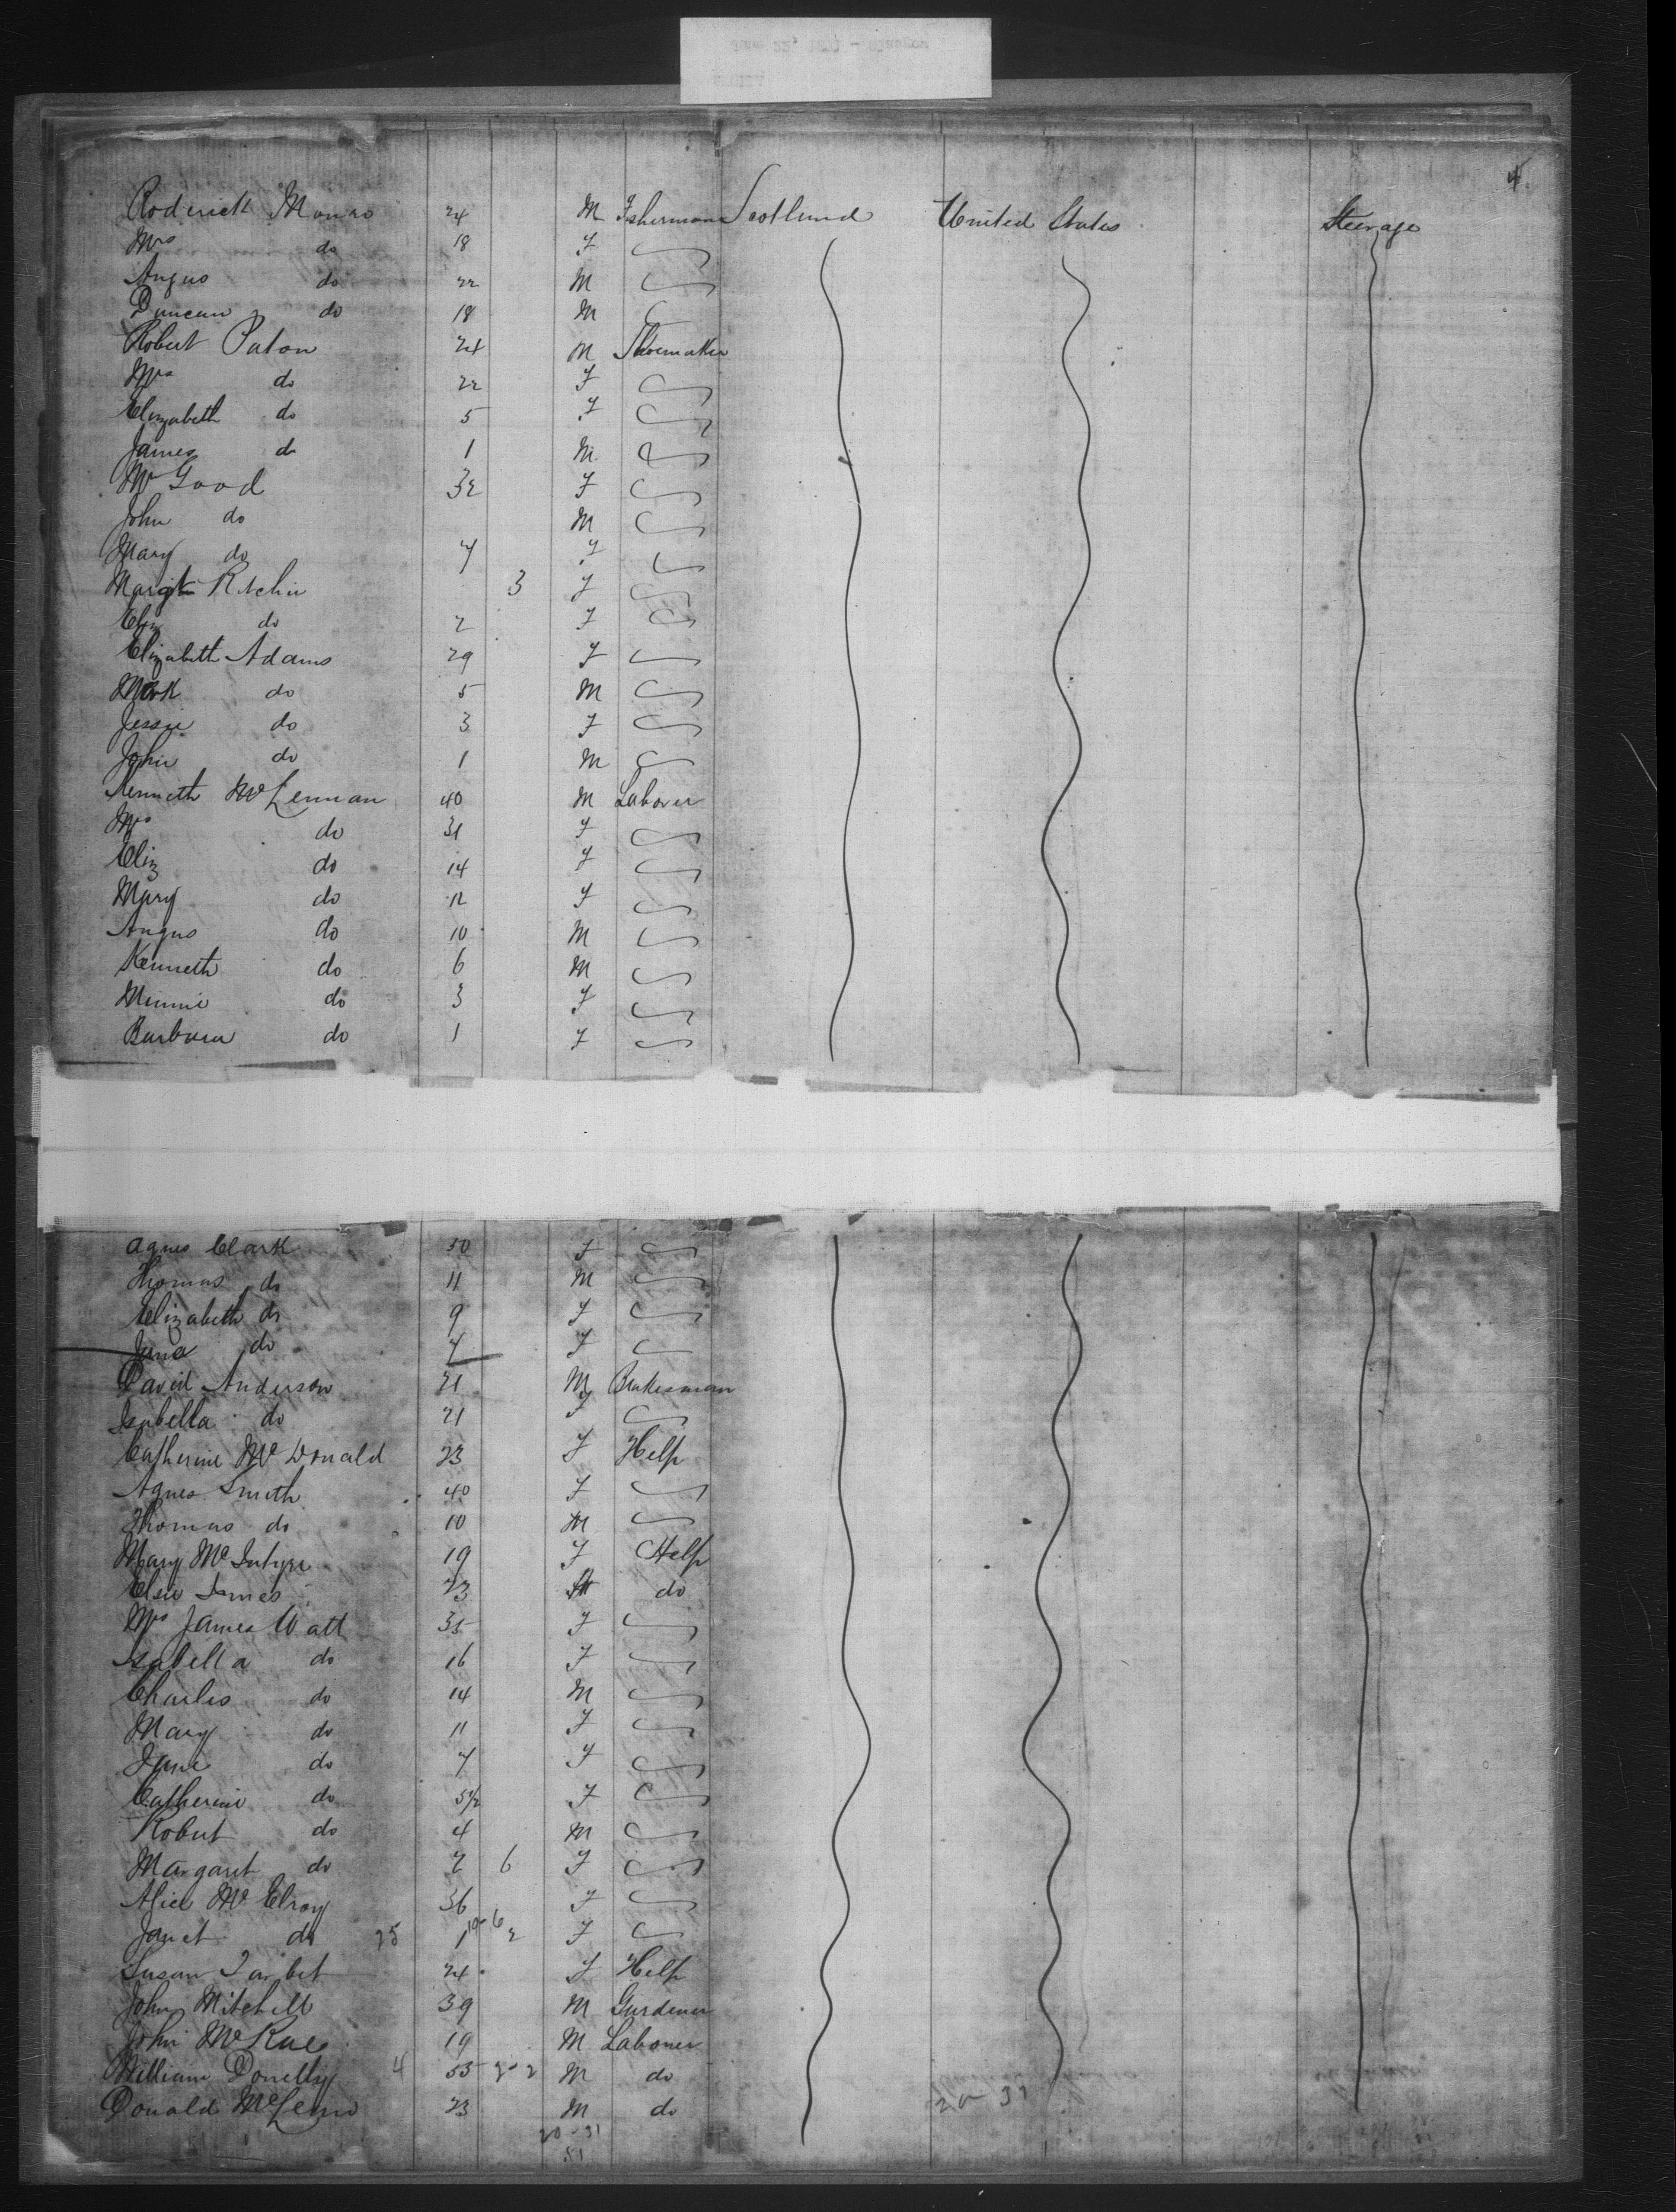 4.
Roderick Munro 24 M Fisherman Scotland United States Steerage
Mrs do 18 F
Angus do 22 M
Duncan do 18 M
Robert Paton 24 M Shoemaker
Mrs do 22 F
Elizabeth do 5 F
James do 1 M
Mrs Good 32 F
John do M
Mary do 7 F
Margt Ritchie 3 F
Eliz do 2 F
Elizabeth Adams 29 F
Mark do 5 M
Jessie do 3 F
John do 1 M
Kenneth McLennan 40 M Laborer
Mrs do 31 F
Eliz do 14 F
Mary do 12 F
Angus do 10 M
Kenneth do 6 M
Minnie do 3 F
Barbara do 1 F
Agnes Clark 30 F
Thomas do 11 M
Elizabeth do 9 F
Jane do 7 F
David Anderson 21 M Brakesman
Isabella do 21 F
Catherine McDonald 23 F Help
Agnes Smith 40 F
Thomas do 10 M
Mary McIntyre 19 F Help
Elsie Innes 23 do
Mrs James Watt 35 F
Isabella do 16 F
Charles do 14 M
Mary do 11 F
Jane do 7 F
Catherine do 5½ F
Robert do 4 M
Margaret do 2 6 F
Alice McElroy 36 F
Janet do 25 1 10-6 2 F
Susan Tarbet 24 F Help
John Mitchell 39 M Gardener
John McRae 19 M Laborer
William Donelly 4 55 3-2 M do
Donald McLean 23 M do
20-31 20-31
51